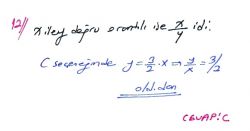 12// x ile y doğru orantılı ise x/y idi.
C seçeneğinde y = 3/2 . x ⇒ y/x = 3/2
olduğundan
CEVAP: C